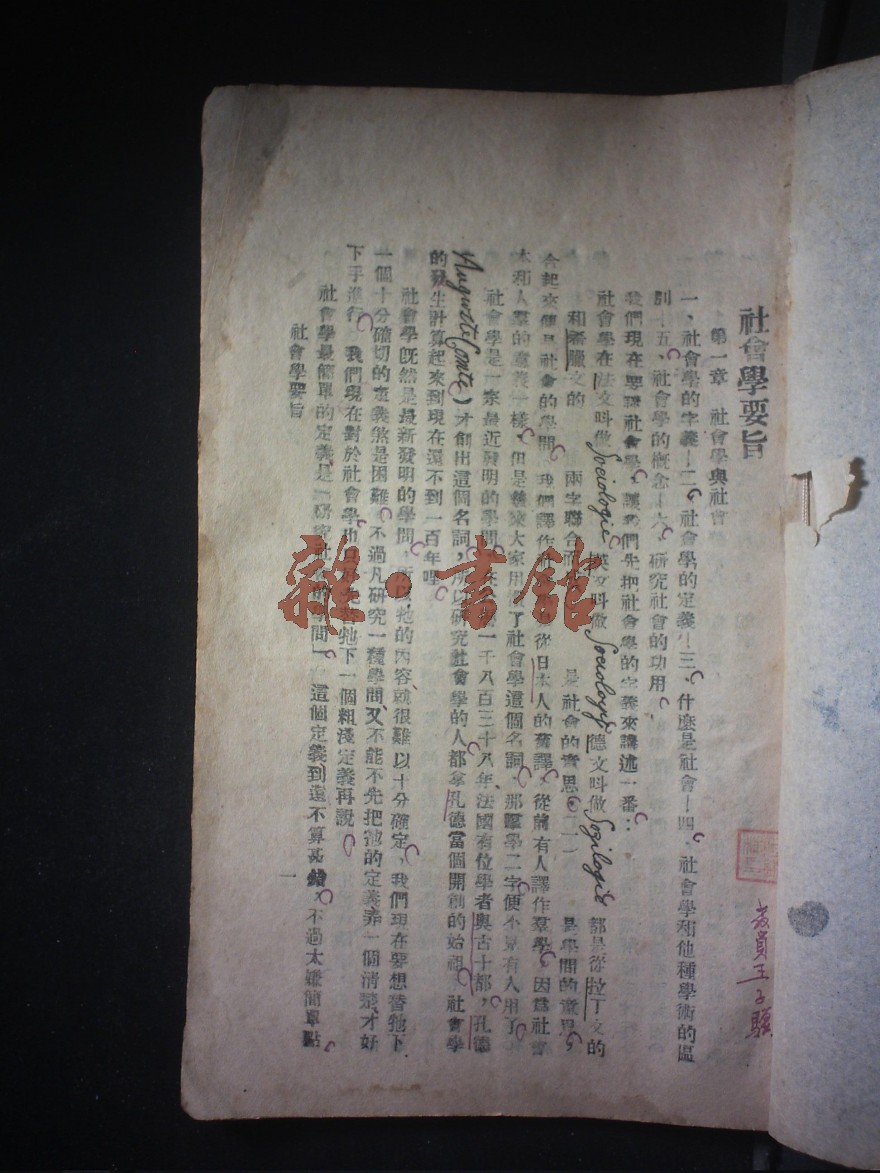 社會學要旨
第一章 社會學與社會
一、社會學的字義—二、社會學的定義—三、什麼是社會—四、社會學和他種學術的區
別—五、社會學的概念—六、研究社會的功用。
我們現在要講社會學、讓我們先把社會學的字義來講述一番：
社會學在法文呌做Sociologie英文呌做Sociology德文呌做Sogilogie都是從拉丁文的
和希臘文的 兩字聯合而 是社會的意思。 是學問的意思，
合起來便是社會的學問、我們譯作 從日本人的舊譯、從前有人譯作羣學、因爲社會
本和人羣的意義一樣、但是後來大家用慣了社會學這個名詞、那羣學二字便不見有人用了
社會學是一宗最近發明的學問 一千八百三十八年、法國有位學者奧古十都，孔德
Auguste Comte）才創出這個名詞，所以研究社會學的人都拿孔德當個開創的始祖、社會學
的發生計算起來到現在還不到一百年哩
社會學旣然是最新發明的學問、所以牠的內容就很難以十分確定、我們現在要想替牠下
一個十分確切的定義煞是困難、不過凡研究一種學問、又不能不先把牠的定義弄一個淸楚、才好
下手進行、我們現在對於社會學也 替牠下一個粗淺定義再說、
社會學最簡單的定義、是「研究社會的學問」、這個定義到還不算甚錯、不過太嫌簡單點、
社會學要旨
一
教員王子騤
雜·書館